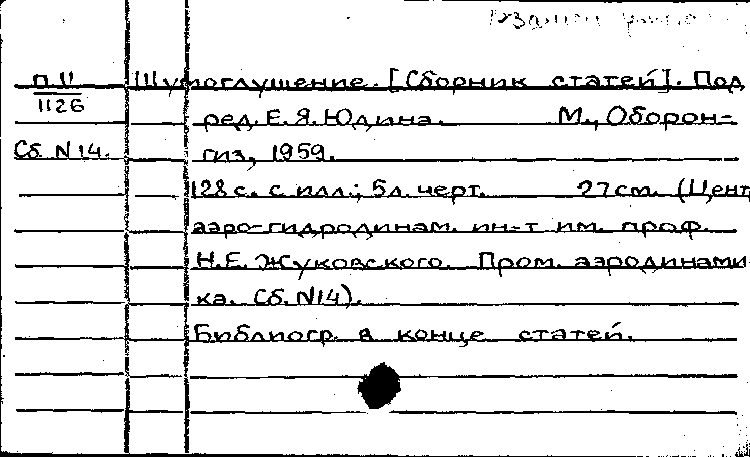 П II Шумоглушение. [Сборник статей]. Под
1126
ред. Е. Я. Юдина. М., Оборон-
Сб. N 14. гиз, 1959.
128 с. с илл.; 5 л. черт. 27 см. (Цент
аэро-гидродинам. ин-т им. проф.
Н. Е. Жуковского. Пром. аэродинами
ка. Сб. N 14).
Библиогр. в конце статей.